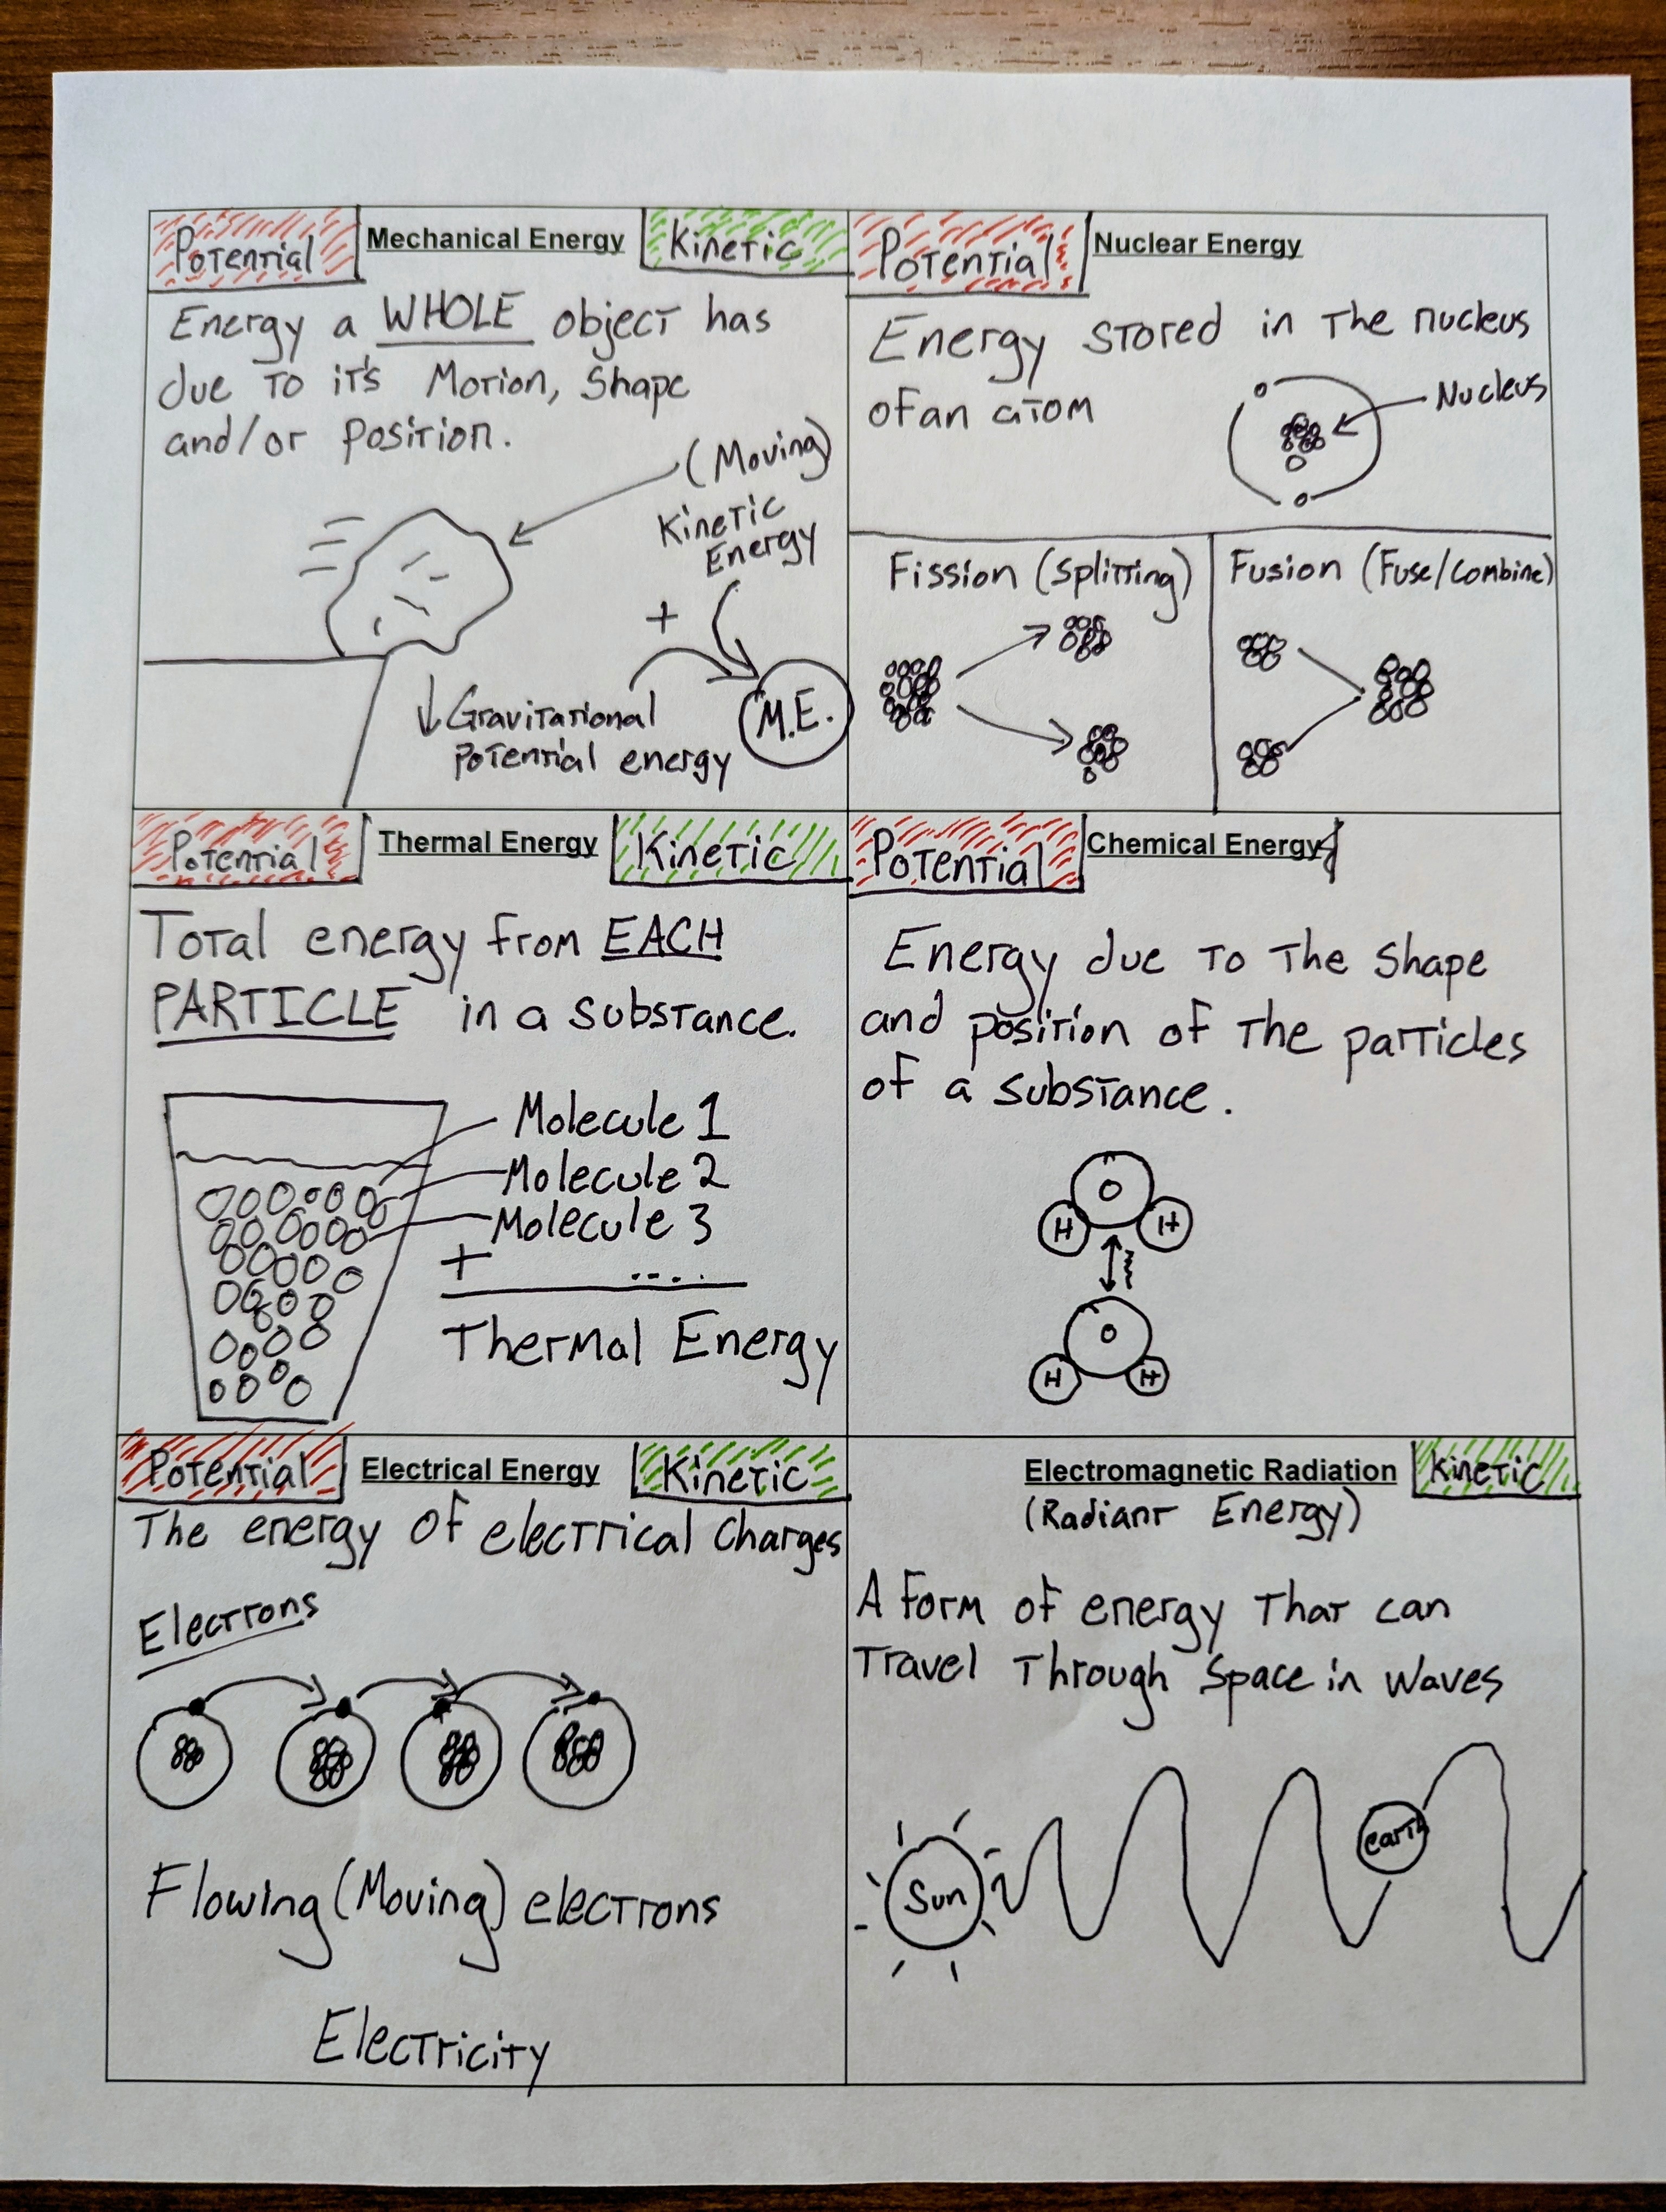 Potential Mechanical Energy Kinetic
Energy a WHOLE object has
due to it's Motion, Shape
and/or position.
(Moving)
Kinetic
Energy
+
↓Gravitational
potential energy
M.E.
Potential Nuclear Energy
Energy stored in the nucleus
of an atom
Nucleus
Fission (Splitting)
Fusion (Fuse/Combine)
Potential Thermal Energy Kinetic
Total energy from EACH
PARTICLE in a substance.
Molecule 1
Molecule 2
Molecule 3
+ ....
Thermal Energy
Potential Chemical Energy
Energy due to the shape
and position of the particles
of a substance.
O
H H
O
H H
Potential Electrical Energy Kinetic
The energy of electrical charges
Electrons
Flowing (Moving) electrons
Electricity
Electromagnetic Radiation Kinetic
(Radiant Energy)
A form of energy that can
travel through space in waves
Sun
earth